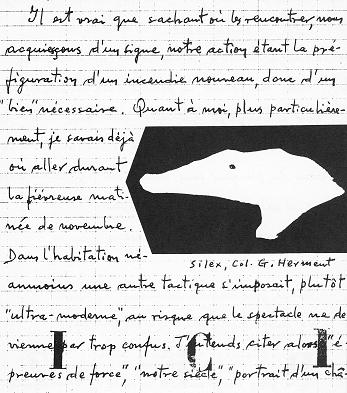 Il est vrai que sachant où les rencontrer, nous
acquiesçons d'un signe, notre action étant la pré-
figuration d'un incendie nouveau, donc d'un
"lieu" nécessaire. Quant à moi, plus particulière-
ment, je savais déjà
où aller durant
la fiévreuse mati-
née de novembre.
Dans l'habitation né-
silex, Col. G. Herment
anmoins une autre tactique s'imposait, plutôt
"ultra-moderne," au risque que le spectacle ne de
vienne par trop confus. J'entends citer alors "é-
I C I
preuves de force", "notre siècle", "portrait d'un châ-